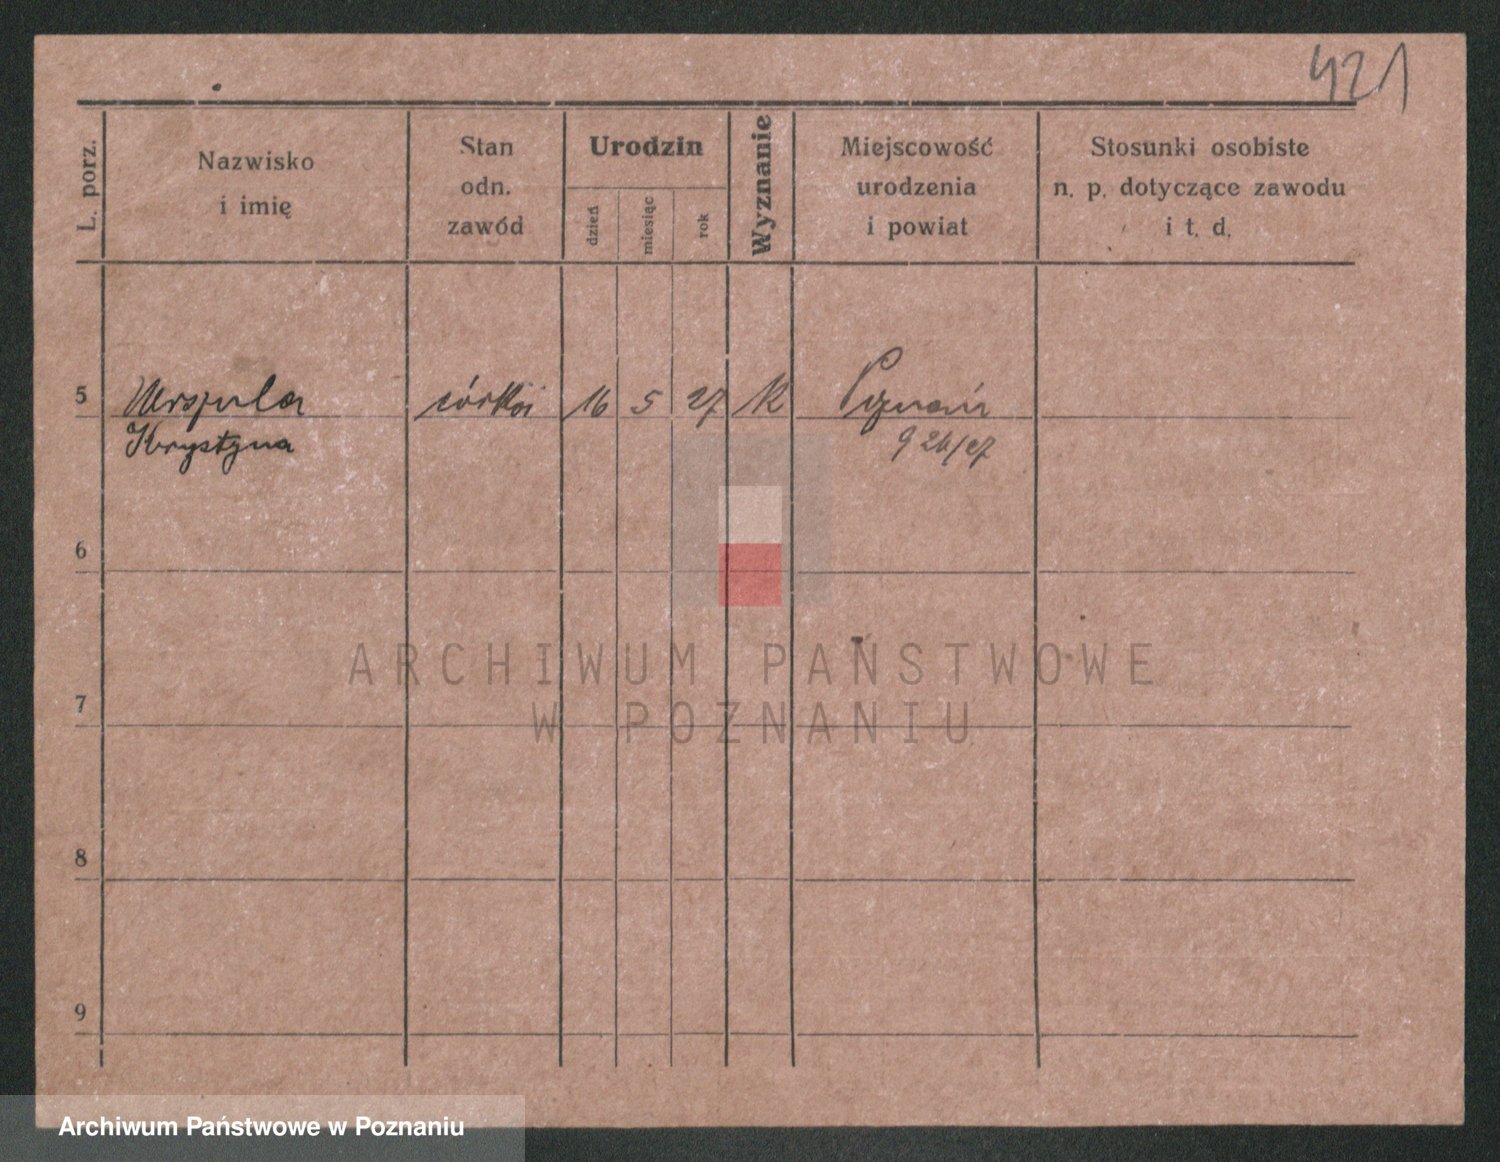 421
L. porz.
Nazwisko
i imię
Stan
odn.
zawód
Urodzin
dzień
miesiąc
rok
Wyznanie
Miejscowość
urodzenia
i powiat
Stosunki osobiste
n. p. dotyczące zawodu
i t. d.
5 Urszula córka 16 5 27 K Poznań
Krystyna
6
7
8
9
ARCHIWUM PAŃSTWOWE
W POZNANIU
Archiwum Państwowe w Poznaniu